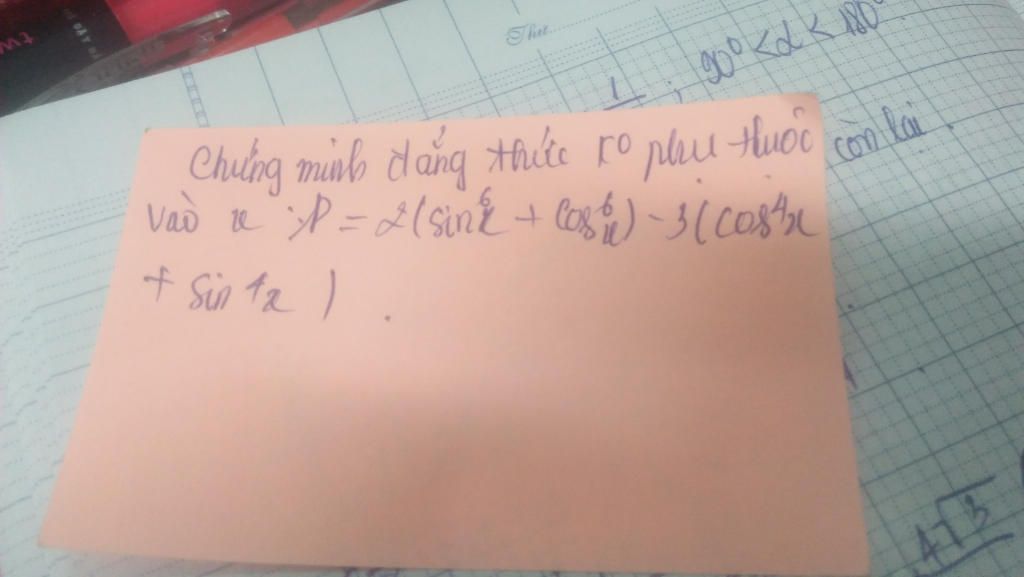 Thứ
1 ; 90° < α < 180°
còn lại.
Chứng minh đẳng thức ko phụ thuộc
vào x : P = 2(sin⁶x + cos⁶x) - 3(cos⁴x
+ sin⁴x) .
4√3